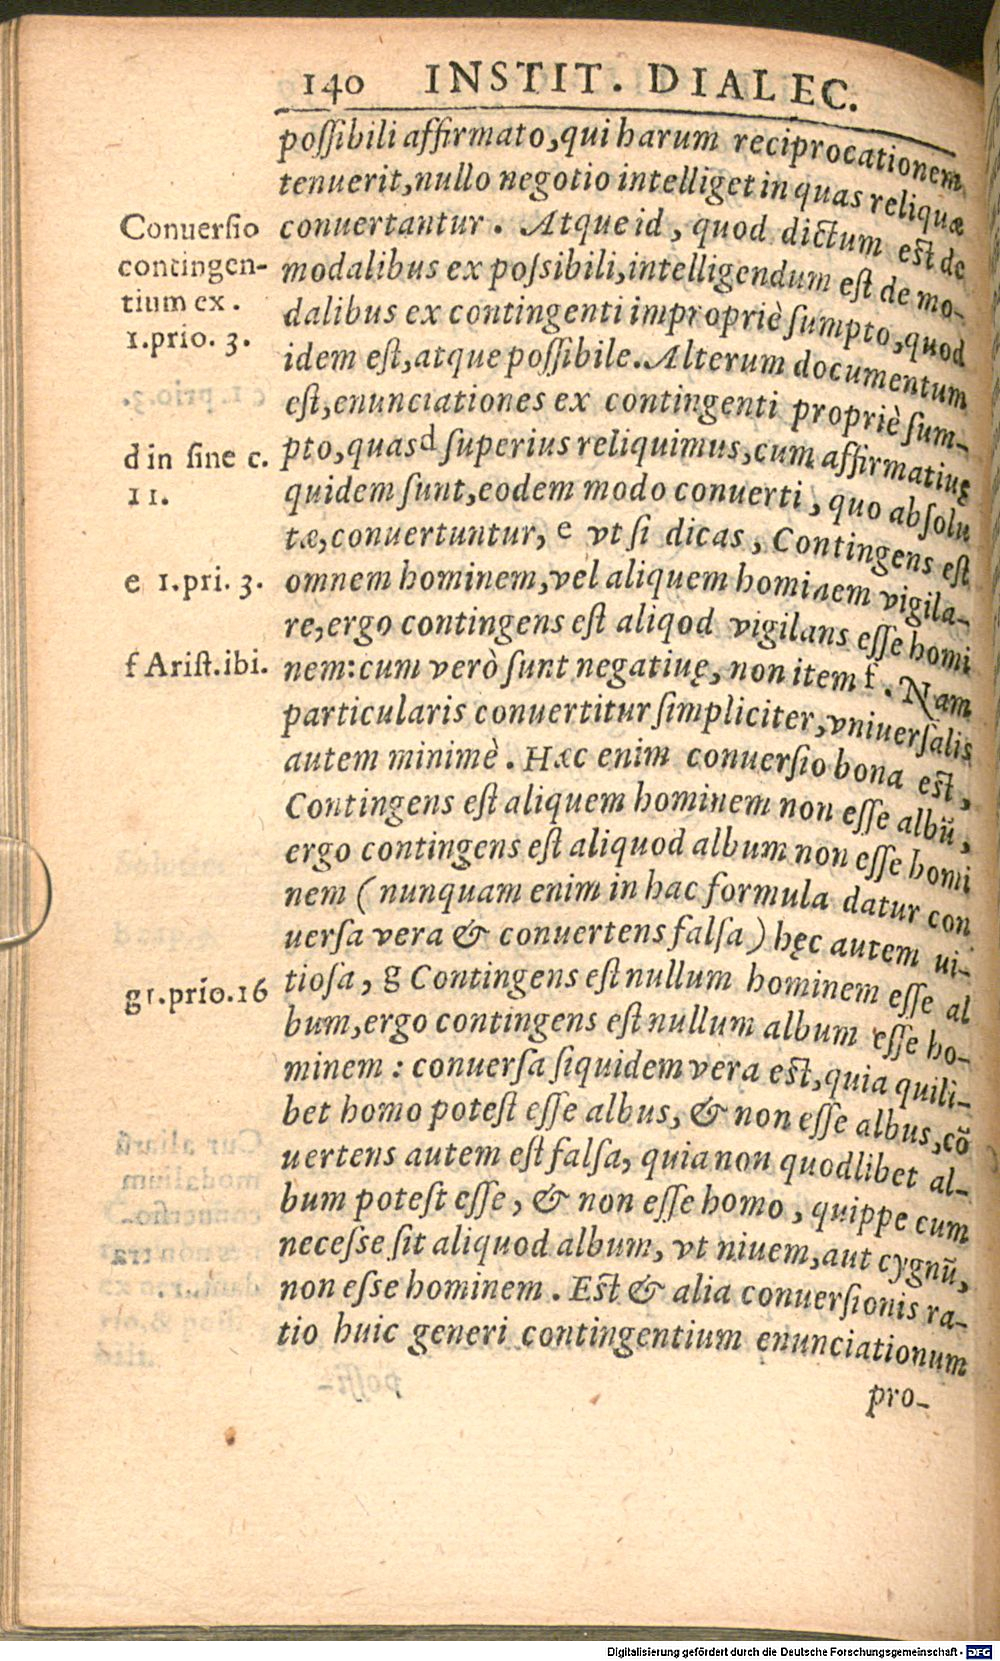 140 INSTIT. DIALEC.
possibili affirmato, qui harum reciprocationem
tenuerit, nullo negotio intelliget in quas reliquæ
conuertantur. Atque id, quod dictum est de
modalibus ex possibili, intelligendum est de mo-
dalibus ex contingenti impropriè sumpto, quod
idem est, atque possibile. Alterum documentum
est, enunciationes ex contingenti propriè sum-
pto, quas d superius reliquimus, cum affirmatiuę
quidem sunt, eodem modo conuerti, quo absolu
tæ, conuertuntur, e vt si dicas, Contingens est
omnem hominem, vel aliquem hominem vigila-
re, ergo contingens est aliqod vigilans esse homi
nem: cum verò sunt negatiuę, non item f. Nam
particularis conuertitur simpliciter, vniuersalis
autem minimè. Hæc enim conuersio bona est,
Contingens est aliquem hominem non esse albũ,
ergo contingens est aliquod album non esse homi
nem (nunquam enim in hac formula datur con
uersa vera & conuertens falsa) hęc autem ui-
tiosa, g Contingens est nullum hominem esse al
bum, ergo contingens est nullum album esse ho-
minem: conuersa siquidem vera est, quia quili-
bet homo potest esse albus, & non esse albus, cõ
uertens autem est falsa, quia non quodlibet al-
bum potest esse, & non esse homo, quippe cum
necesse sit aliquod album, vt niuem, aut cygnũ,
non esse hominem. Est & alia conuersionis ra-
tio huic generi contingentium enunciationum
pro-
Conuersio
contingen-
tium ex.
1.prio. 3.
d in fine c.
11.
e 1.pri. 3.
f Arist.ibi.
g1.prio.16
Digitalisierung gefördert durch die Deutsche Forschungsgemeinschaft - DFG